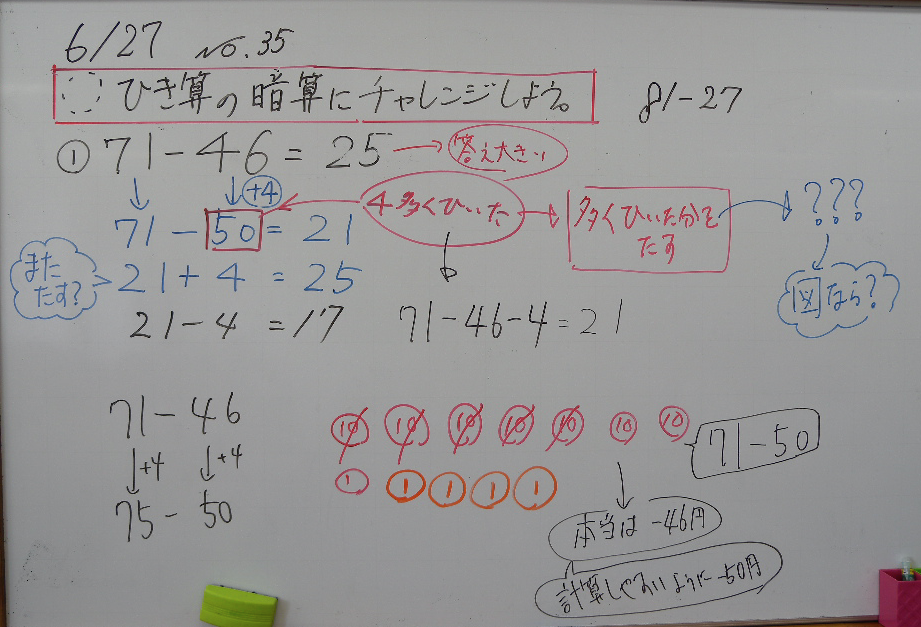 6/27 No.35
ひき算の暗算にチャレンジしよう。
81-27
① 71-46=25
答え大きい
+4
71-50=21
4多くひいた
多くひいた分を
たす
???
また
たす?
21+4=25
図なら?
21-4=17
71-46-4=21
71-46
+4 +4
75-50
10 10 10 10 10 10 10
1 1 1 1 1
71-50
本当は-46円
計算しやすいように-50円